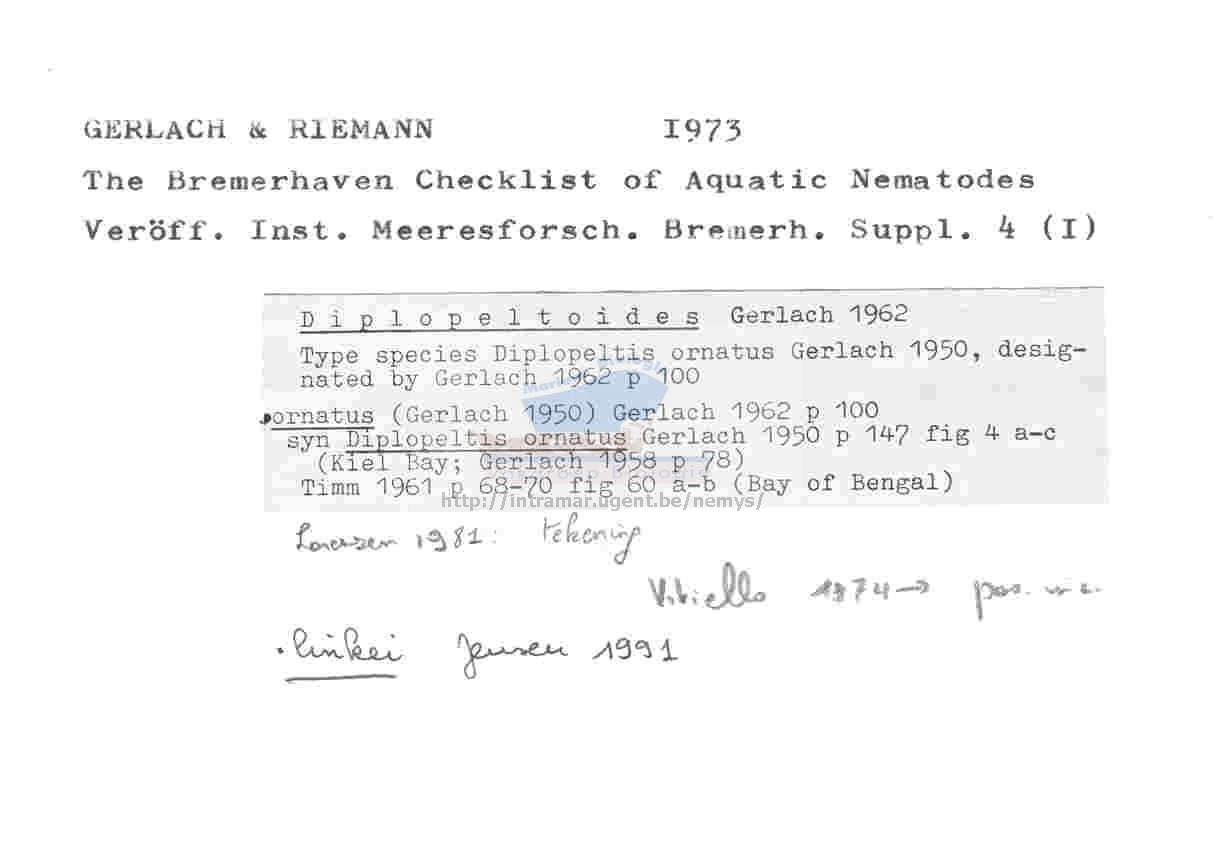 GERLACH & RIEMANN I973
The Bremerhaven Checklist of Aquatic Nematodes
Veröff. Inst. Meeresforsch. Bremerh. Suppl. 4 (I)
Diplopeltoides Gerlach 1962
Type species Diplopeltis ornatus Gerlach 1950, desig-
nated by Gerlach 1962 p 100
•ornatus (Gerlach 1950) Gerlach 1962 p 100
syn Diplopeltis ornatus Gerlach 1950 p 147 fig 4 a-c
(Kiel Bay; Gerlach 1958 p 78)
Timm 1961 p 68-70 fig 60 a-b (Bay of Bengal)
http://intramar.ugent.be/nemys/
Lorenzen 1981: tekening
Vitiello 1974→ pas.
• linkei Jensen 1991